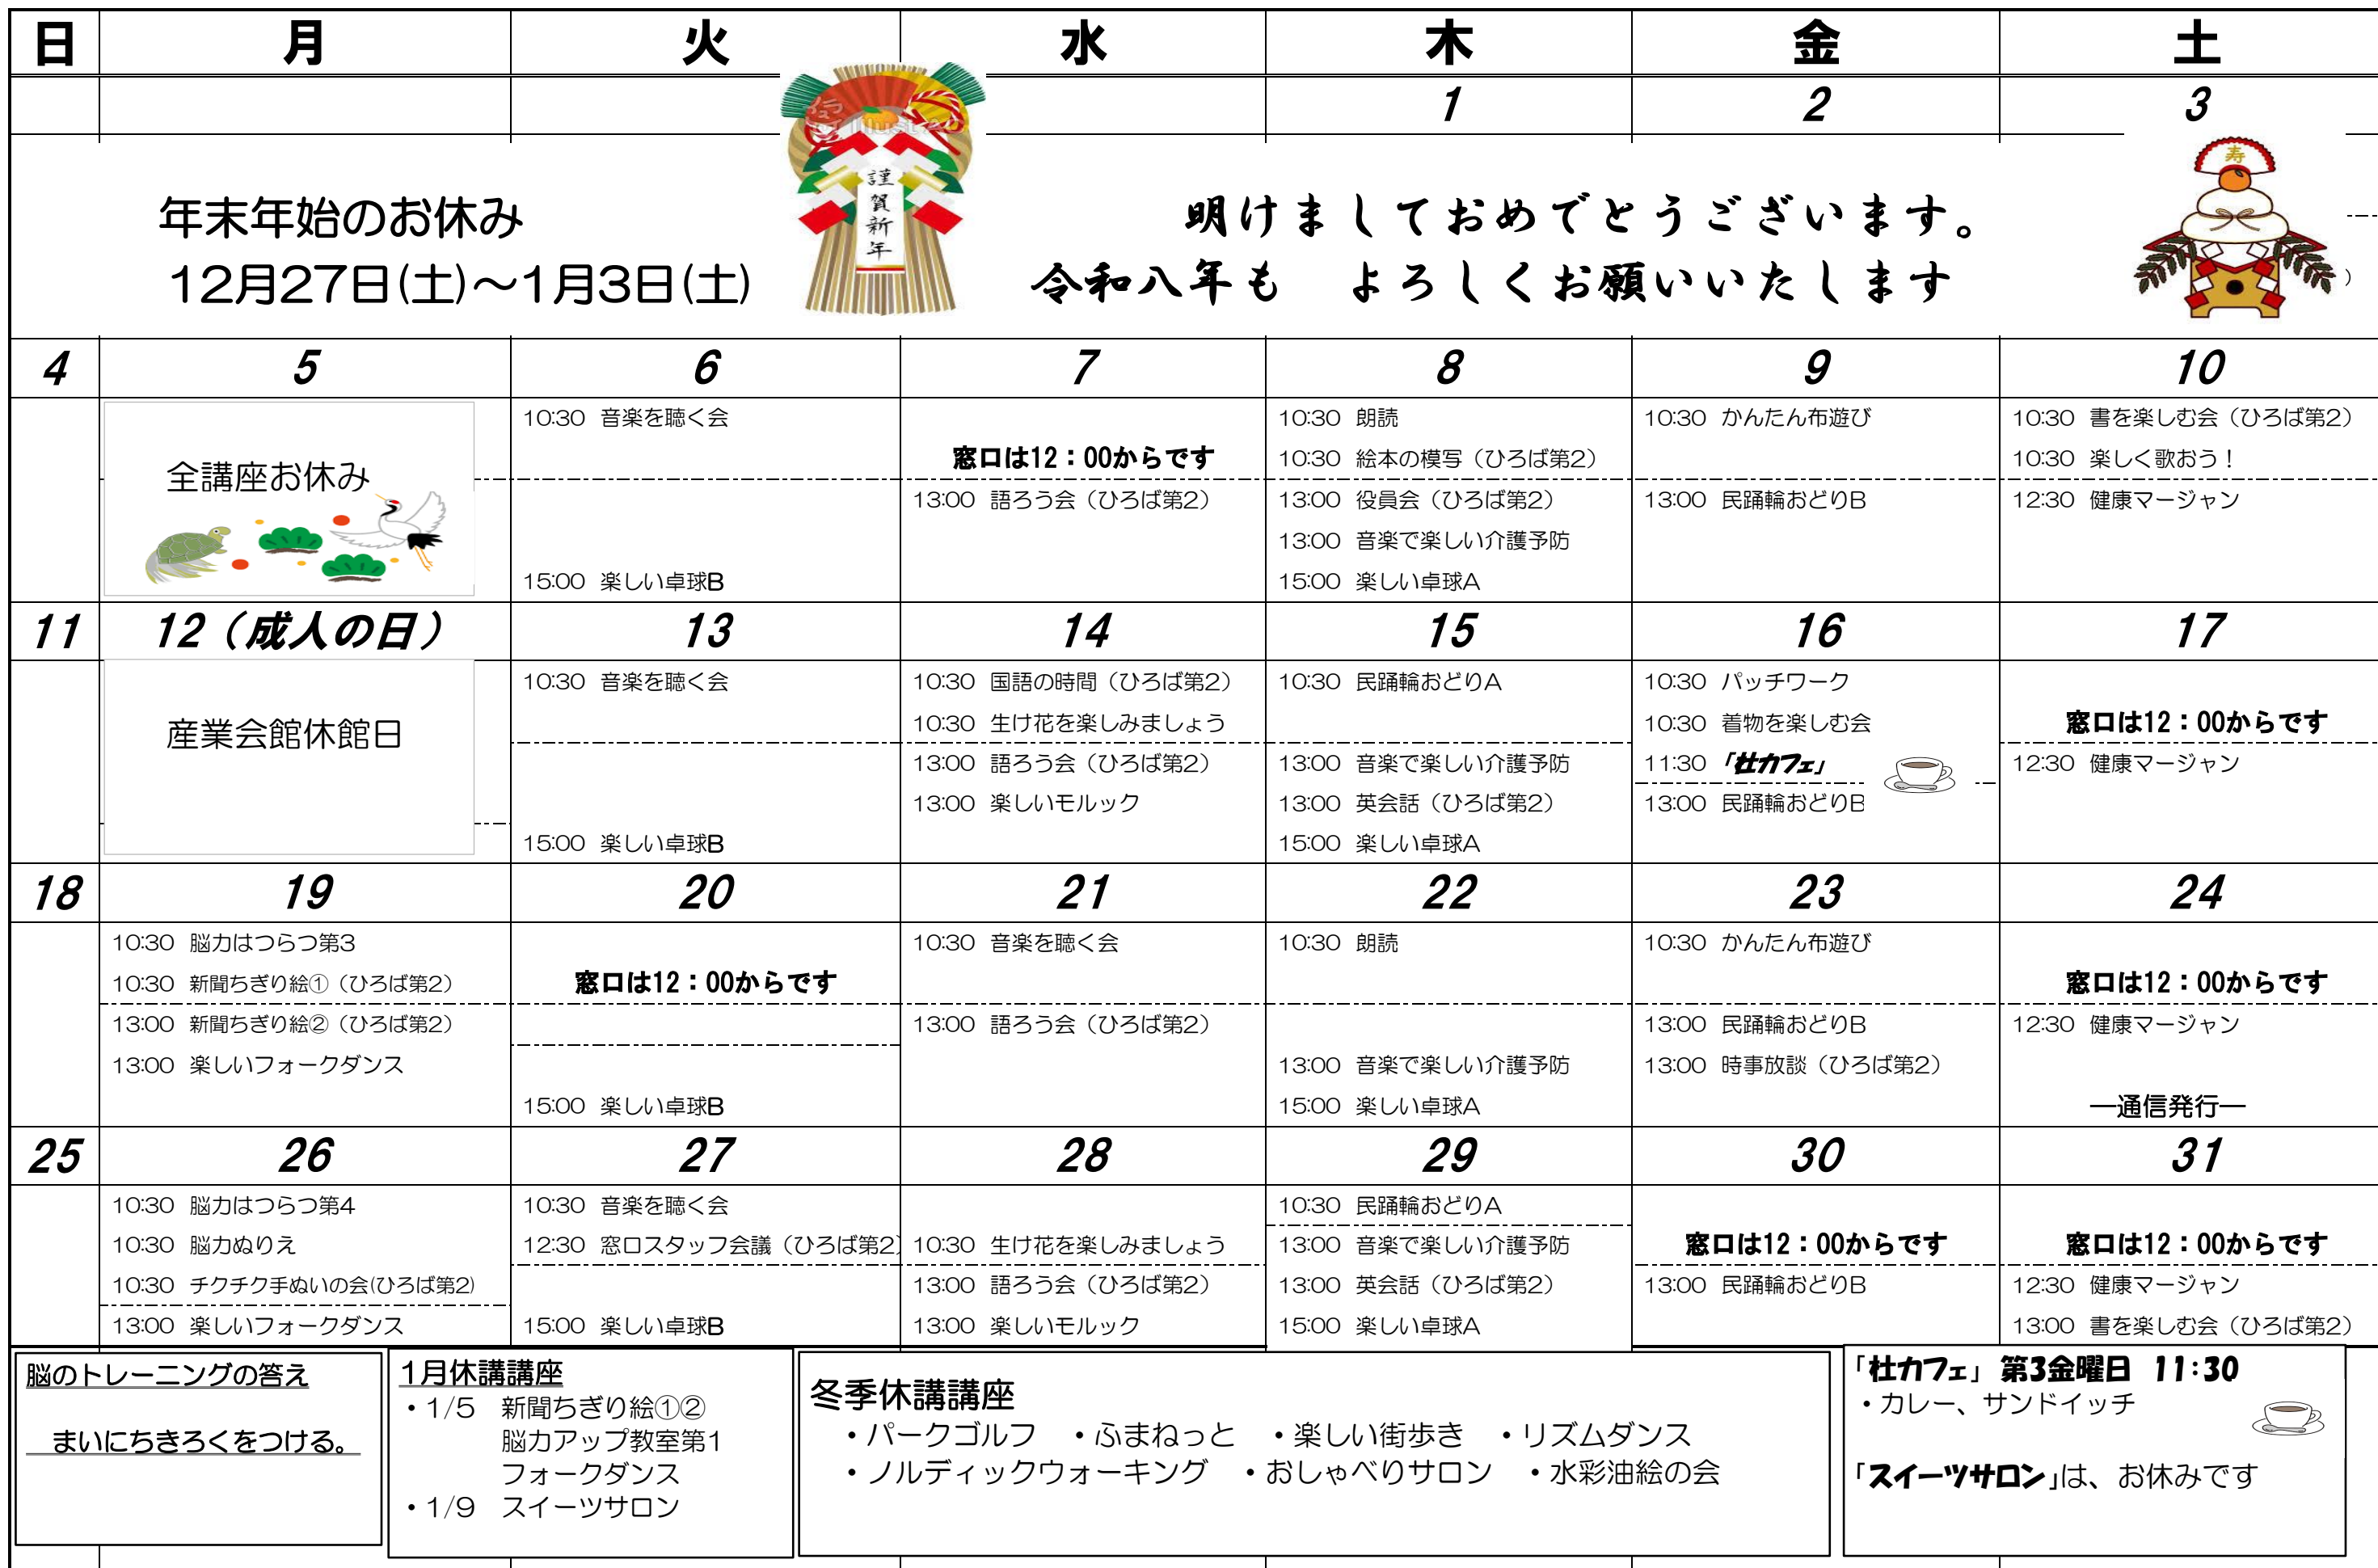 日 月 火 水 木 金 土
1 2 3
謹賀新年
寿
年末年始のお休み
12月27日(土)～1月3日(土)
明けましておめでとうございます。
令和八年も よろしくお願いいたします
4 5 6 7 8 9 10
全講座お休み
10:30 音楽を聴く会
15:00 楽しい卓球B
窓口は12：00からです
13:00 語ろう会（ひろば第2）
10:30 朗読
10:30 絵本の模写（ひろば第2）
13:00 役員会（ひろば第2）
13:00 音楽で楽しい介護予防
15:00 楽しい卓球A
10:30 かんたん布遊び
13:00 民踊輪おどりB
10:30 書を楽しむ会（ひろば第2）
10:30 楽しく歌おう！
12:30 健康マージャン
11 12（成人の日） 13 14 15 16 17
産業会館休館日
10:30 音楽を聴く会
15:00 楽しい卓球B
10:30 国語の時間（ひろば第2）
10:30 生け花を楽しみましょう
13:00 語ろう会（ひろば第2）
13:00 楽しいモルック
10:30 民踊輪おどりA
13:00 音楽で楽しい介護予防
13:00 英会話（ひろば第2）
15:00 楽しい卓球A
10:30 パッチワーク
10:30 着物を楽しむ会
11:30 「杜カフェ」
13:00 民踊輪おどりB
窓口は12：00からです
12:30 健康マージャン
18 19 20 21 22 23 24
10:30 脳力はつらつ第3
10:30 新聞ちぎり絵①（ひろば第2）
13:00 新聞ちぎり絵②（ひろば第2）
13:00 楽しいフォークダンス
窓口は12：00からです
15:00 楽しい卓球B
10:30 音楽を聴く会
13:00 語ろう会（ひろば第2）
10:30 朗読
13:00 音楽で楽しい介護予防
15:00 楽しい卓球A
10:30 かんたん布遊び
13:00 民踊輪おどりB
13:00 時事放談（ひろば第2）
窓口は12：00からです
12:30 健康マージャン
―通信発行―
25 26 27 28 29 30 31
10:30 脳力はつらつ第4
10:30 脳力ぬりえ
10:30 チクチク手ぬいの会(ひろば第2)
13:00 楽しいフォークダンス
10:30 音楽を聴く会
12:30 窓口スタッフ会議（ひろば第2）
15:00 楽しい卓球B
10:30 生け花を楽しみましょう
13:00 語ろう会（ひろば第2）
13:00 楽しいモルック
10:30 民踊輪おどりA
13:00 音楽で楽しい介護予防
13:00 英会話（ひろば第2）
15:00 楽しい卓球A
窓口は12：00からです
13:00 民踊輪おどりB
窓口は12：00からです
12:30 健康マージャン
13:00 書を楽しむ会（ひろば第2）
脳のトレーニングの答え
まいにちきろくをつける。
1月休講講座
・1/5 新聞ちぎり絵①②
脳力アップ教室第1
フォークダンス
・1/9 スイーツサロン
冬季休講講座
・パークゴルフ ・ふまねっと ・楽しい街歩き ・リズムダンス
・ノルディックウォーキング ・おしゃべりサロン ・水彩油絵の会
「杜カフェ」 第3金曜日 11:30
・カレー、サンドイッチ
「スイーツサロン」は、お休みです